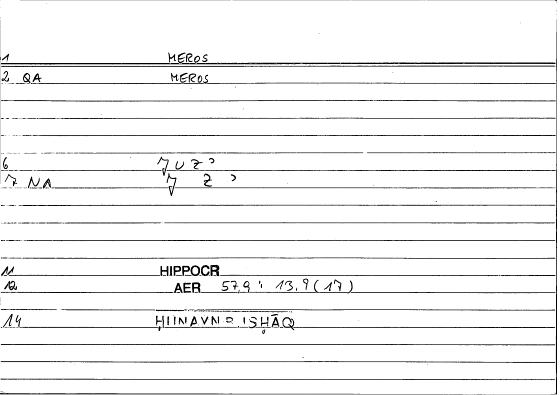 1 MEROS
2 QA MEROS
6 ǦUZʾ
7 NA Ǧ Z ʾ
11 HIPPOCR
12 AER 57,9 : 13,9 (17)
14 ISḤĀQ